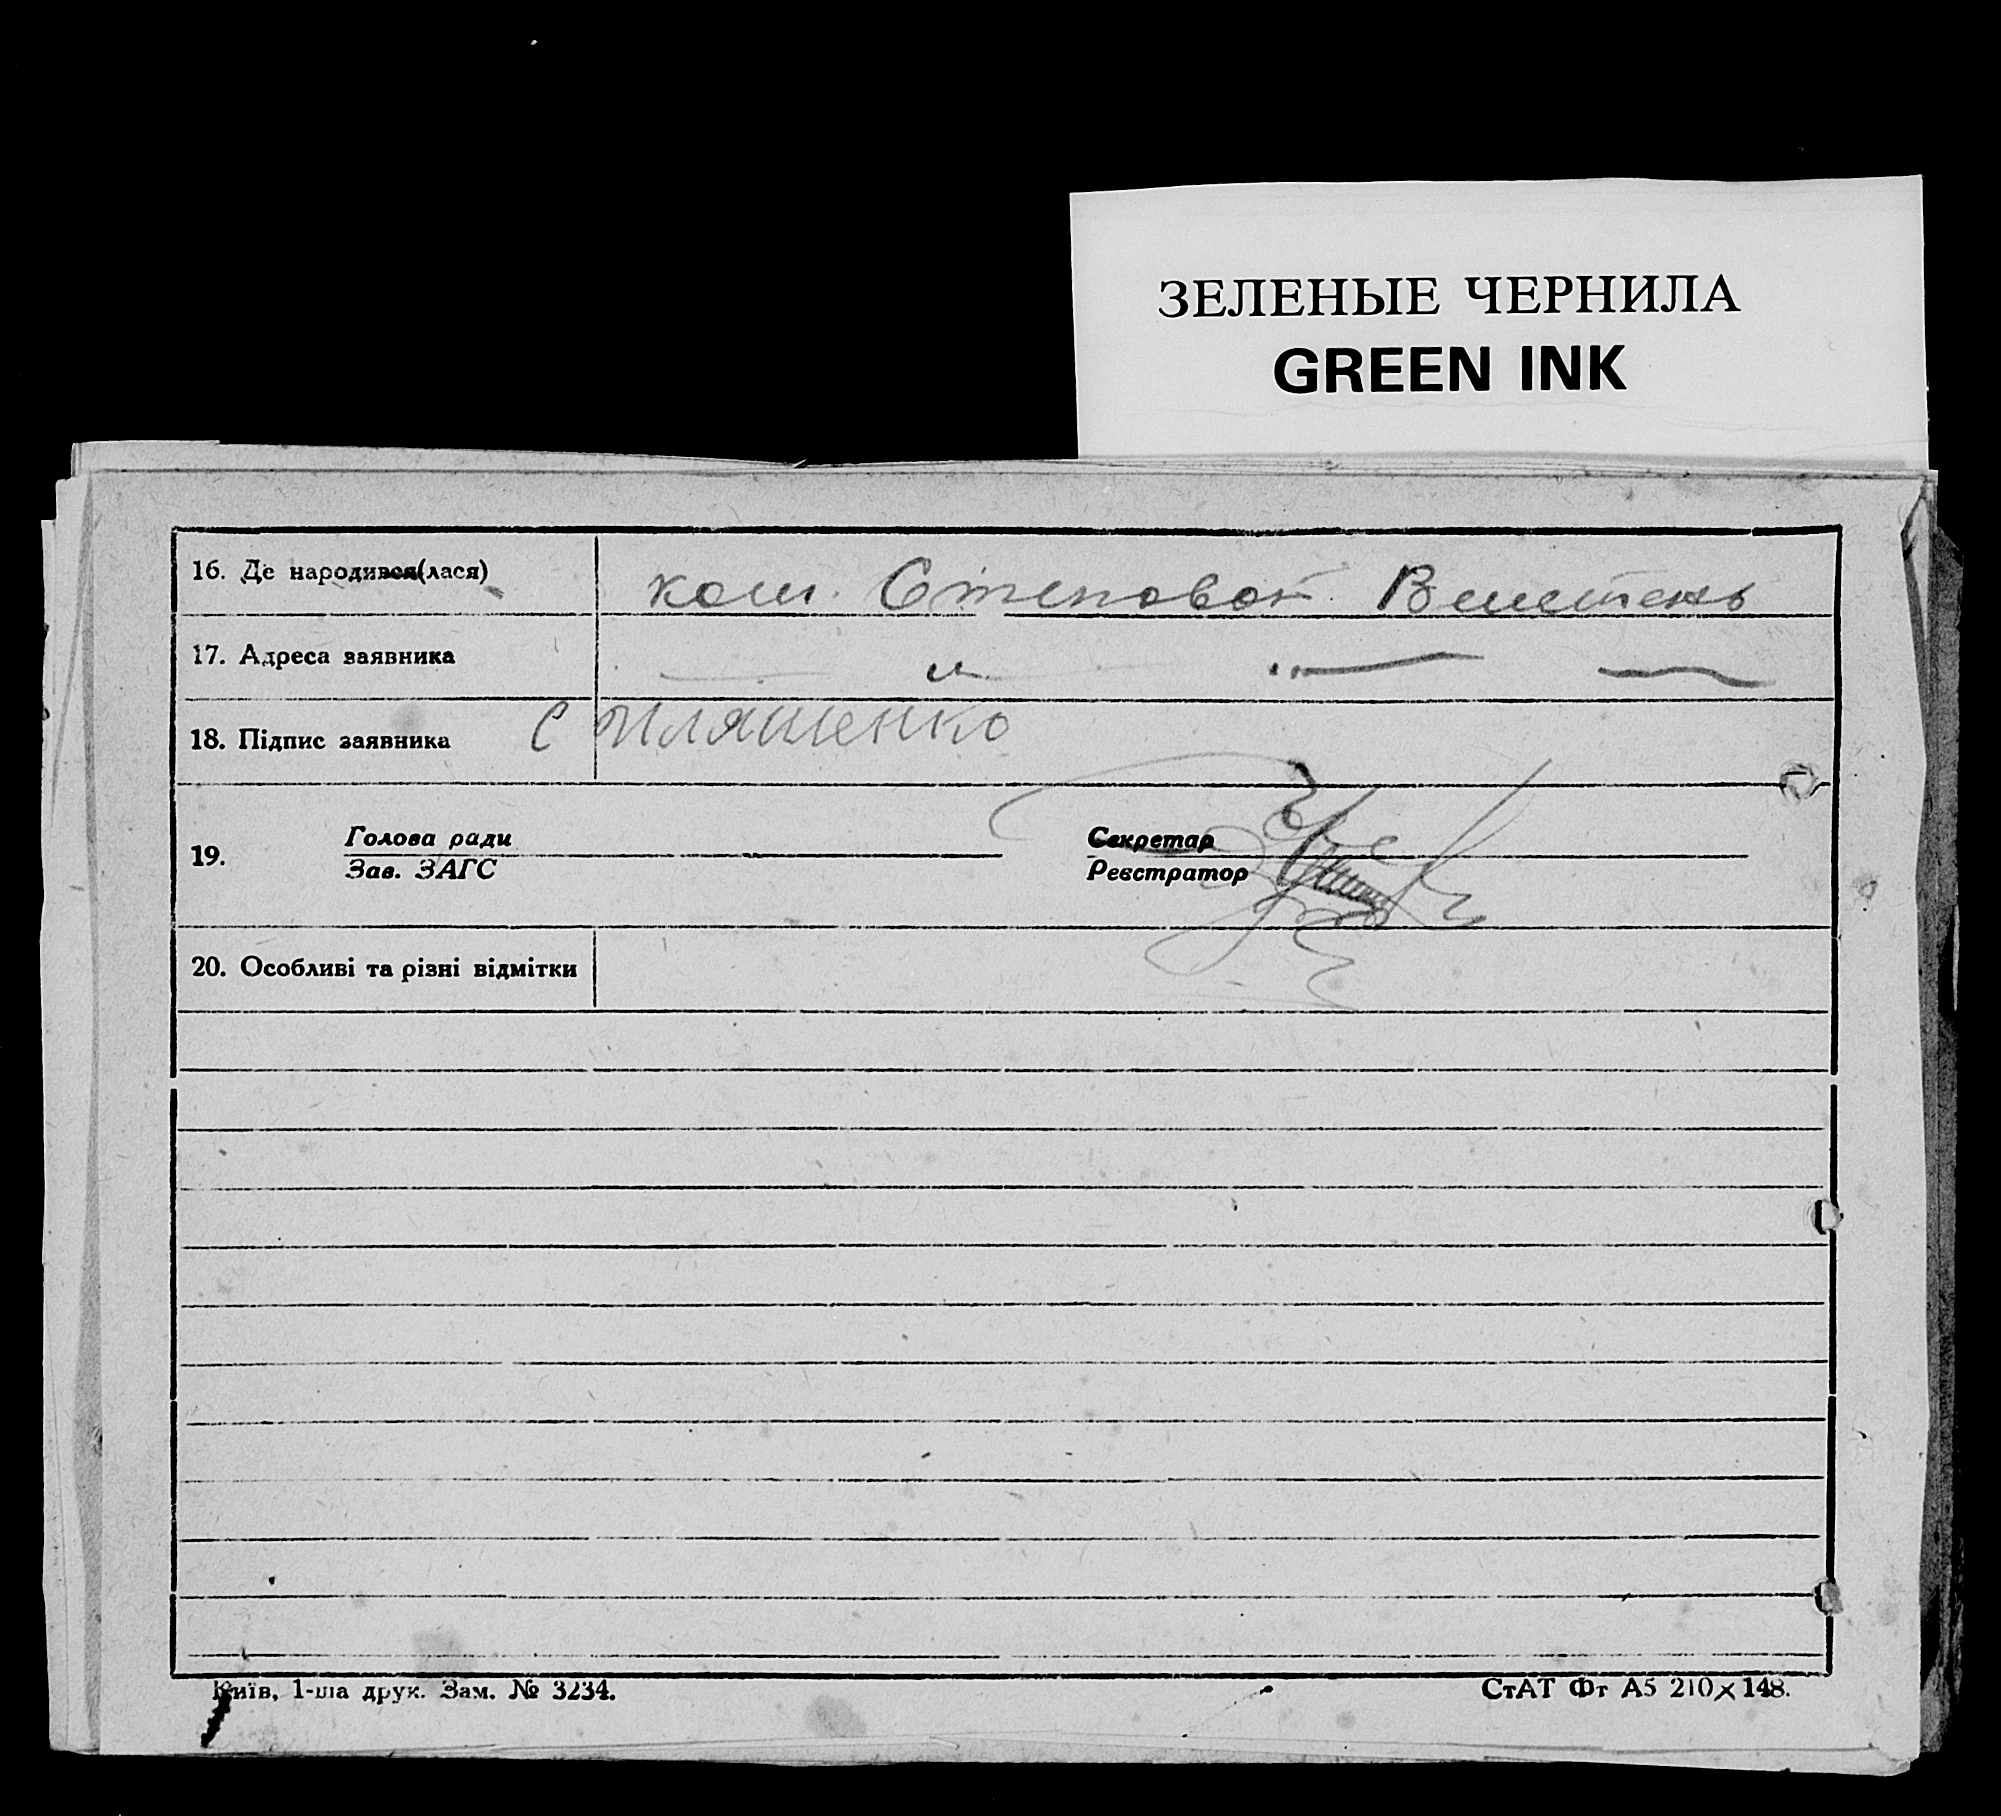 ЗЕЛЕНЫЕ ЧЕРНИЛА
GREEN INK
16. Де народився(лася)
Степовой
17. Адреса заявника
18. Підпис заявника
с Пляшенко
19.
Голова ради
Зав. ЗАГС
Секретар
Реєстратор
20. Особливі та різні відмітки
Київ, 1-ша друк. Зам. № 3234.
СтАТ Фт А5 210×148.